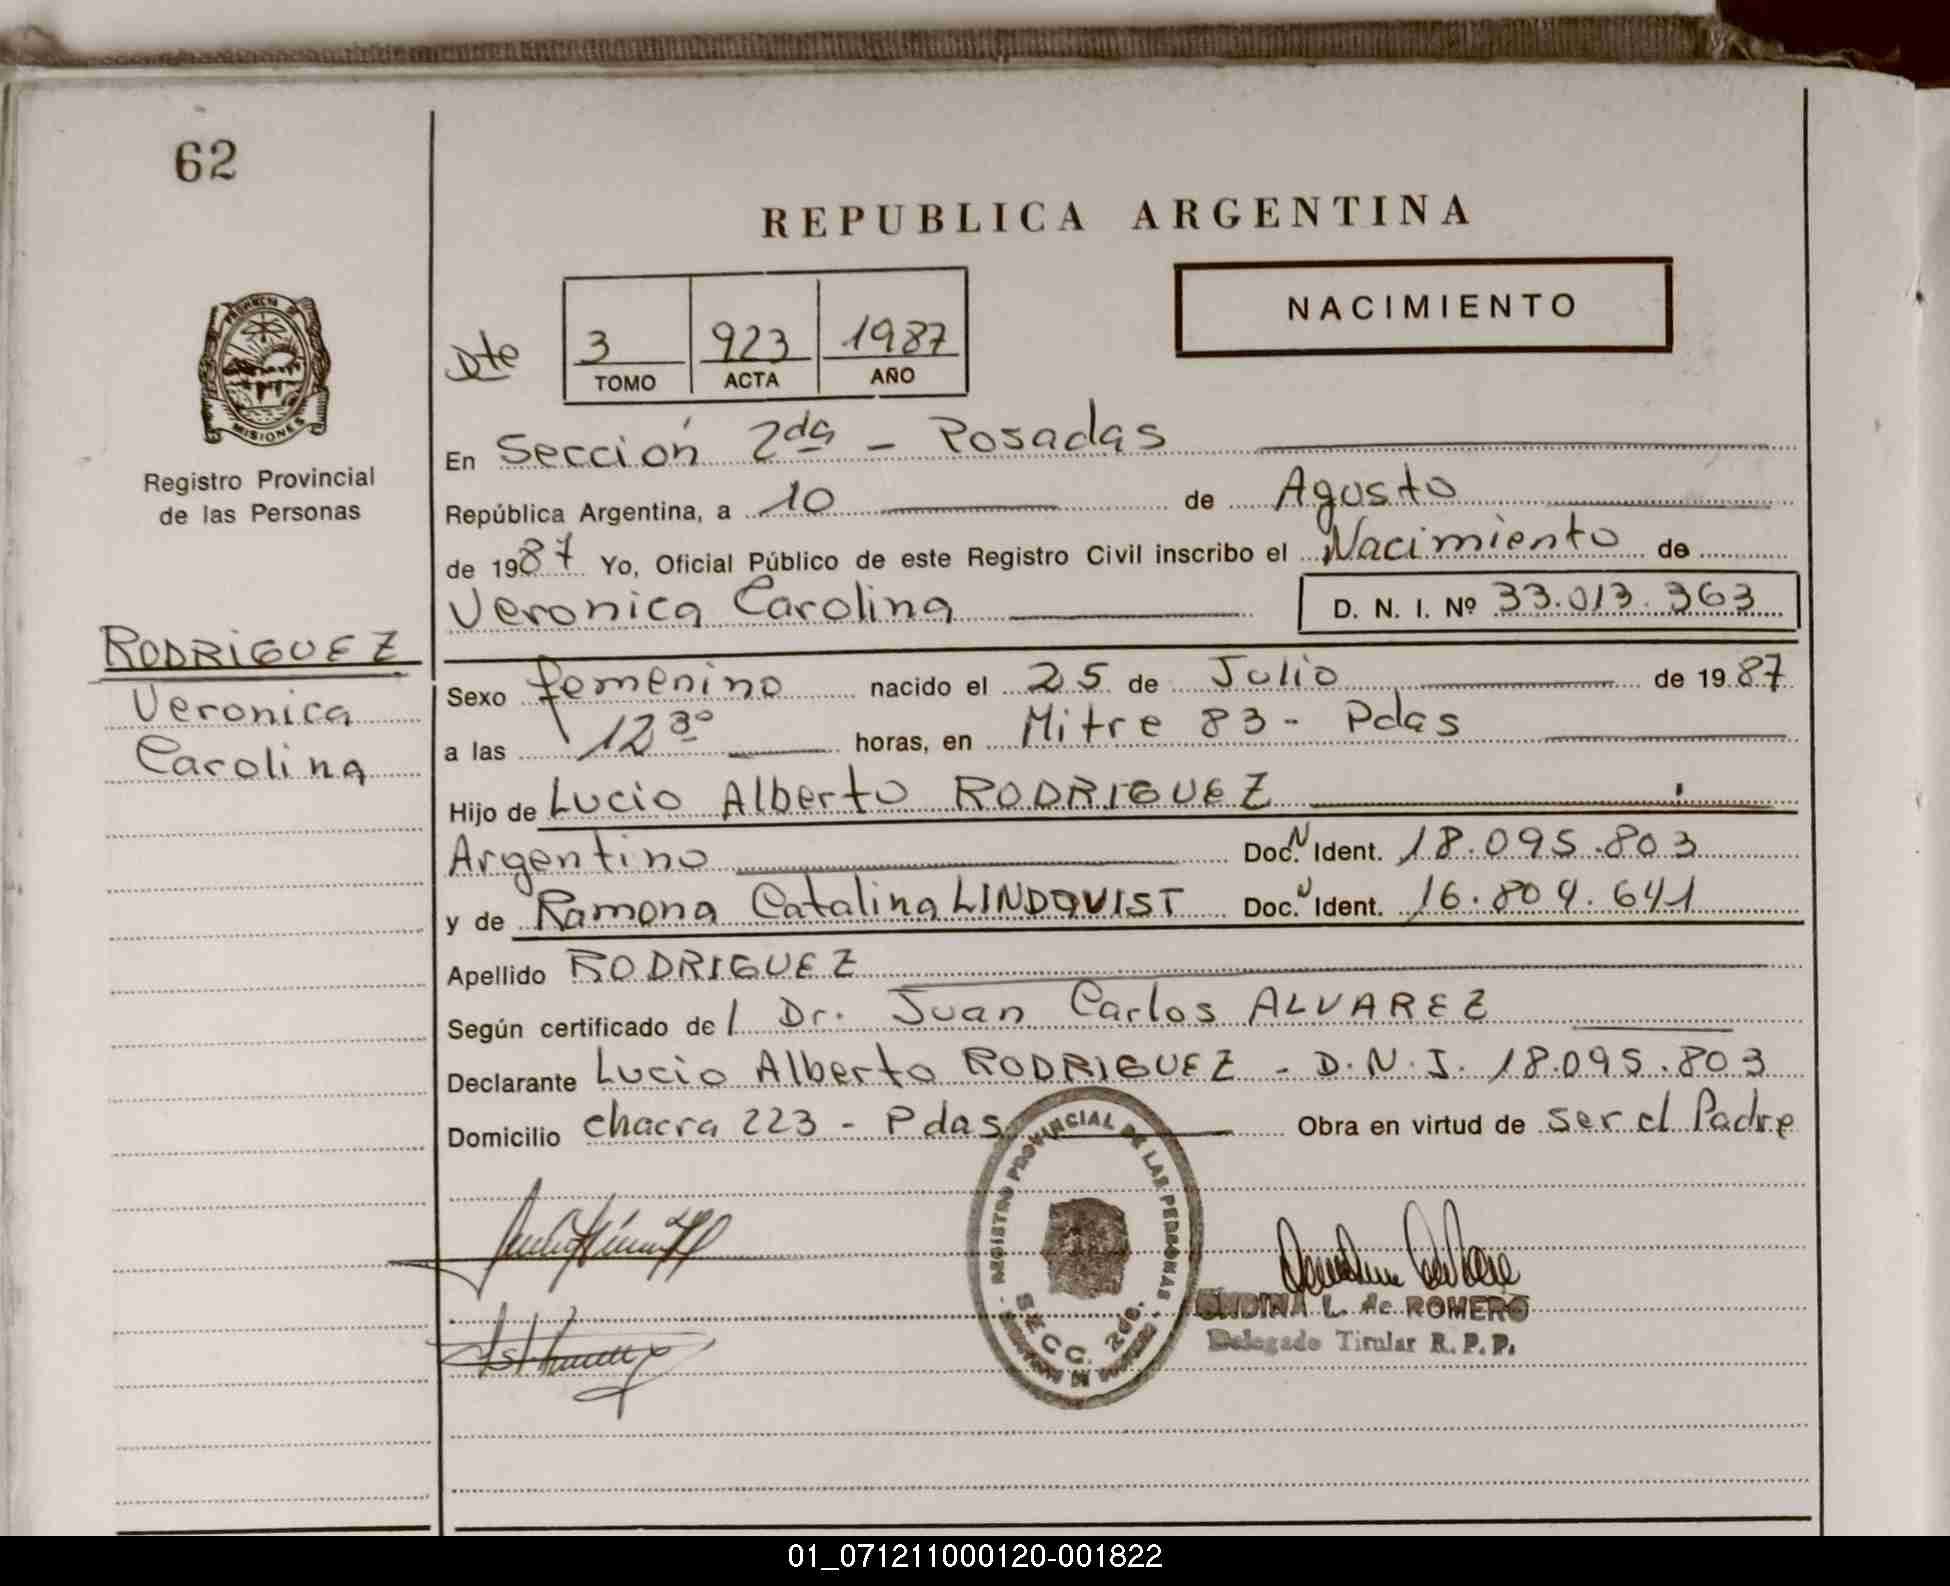 62
REPUBLICA ARGENTINA
NACIMIENTO
Dte
3 923 1987
TOMO ACTA AÑO
PROVINCIA DE
MISIONES
Registro Provincial
de las Personas
RODRIGUEZ
Veronica
Carolina
En Sección 2da - Posadas
República Argentina, a 10 de Agosto
de 1987 Yo, Oficial Público de este Registro Civil inscribo el Nacimiento de
Veronica Carolina D. N. I. Nº 33.013.363
Sexo femenino nacido el 25 de Julio de 1987
a las 12 30 horas, en Mitre 83 - Pdas
Hijo de Lucio Alberto RODRIGUEZ
Argentino Doc. N Ident. 18.095.803
y de Ramona Catalina LINDQVIST Doc. N Ident. 16.809.641
Apellido RODRIGUEZ
Según certificado del Dr. Juan Carlos ALVAREZ
Declarante Lucio Alberto RODRIGUEZ - D.N.I. 18.095.803
Domicilio chacra 223 - Pdas Obra en virtud de ser el Padre
REGISTRO PROVINCIAL DE LAS PERSONAS
SECC. 2da.
ONDINA L. de ROMERO
Delegado Titular R. P. P.
01_071211000120-001822